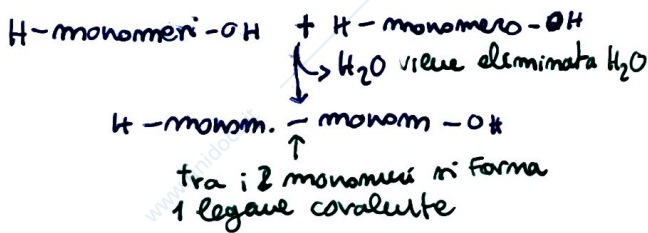 H-monomeri-OH + H-monomero-OH
H₂O viene eliminata H₂O
H-monom. - monom-OH
tra i 2 monomeri si forma
1 legame covalente